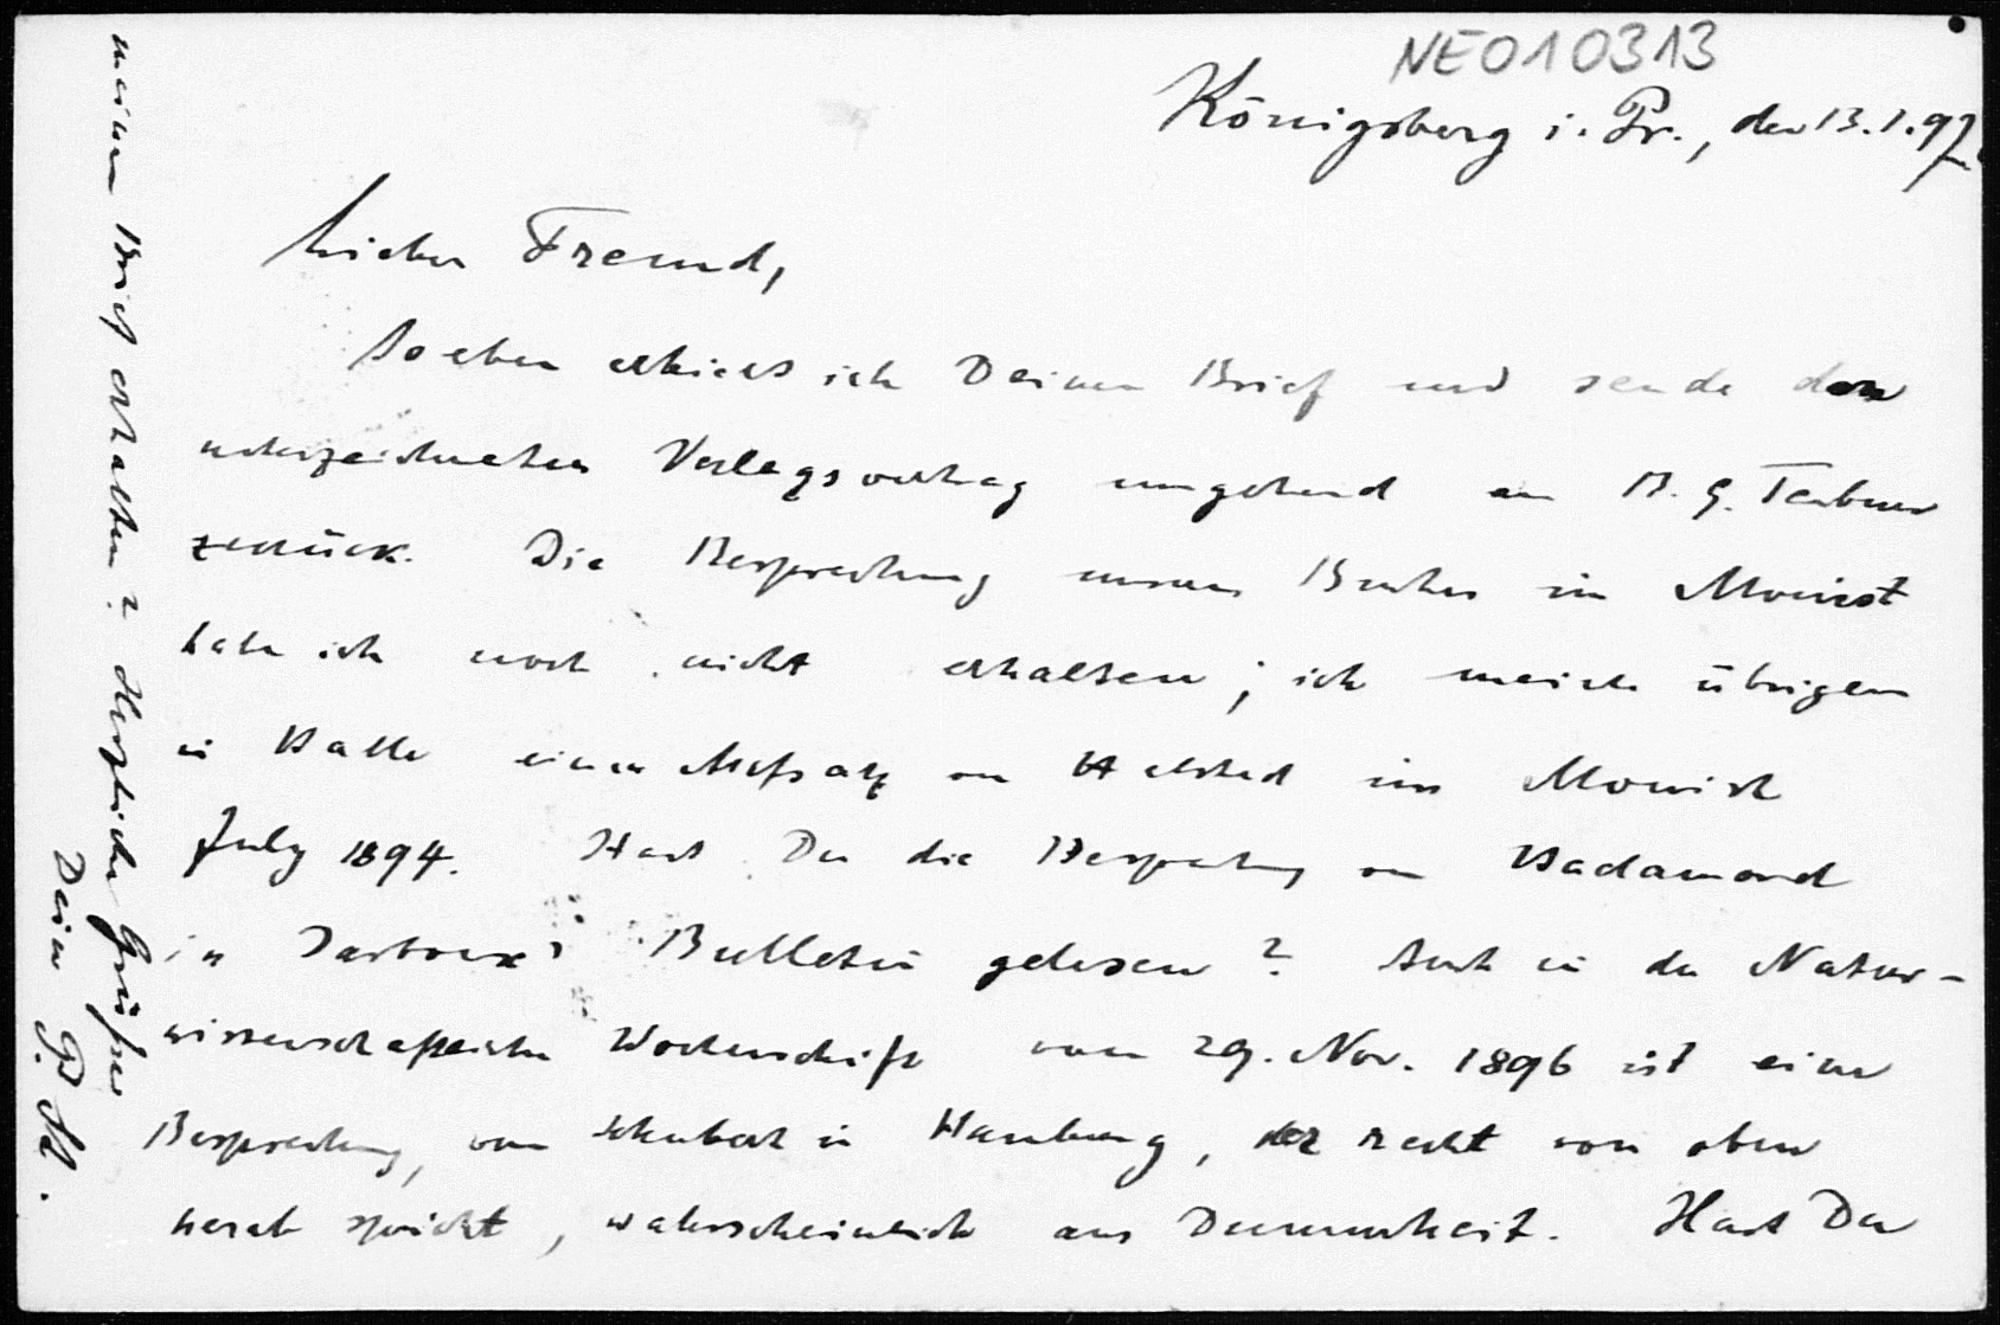 NEO10313
Königsberg i. Pr., den 13.1.97.
Lieber Freund,
Soeben erhielt ich Deinen Brief und sende den
unterzeichneten Verlagsvertrag umgehend an B. G. Teubner
zurück. Die Besprechung unseres Buches im Monist
habe ich noch nicht erhalten; ich übrigens
in Halle einen Aufsatz von Halsted im Monist
July 1894. Hast Du die Besprechung von Hadamard
in Darboux' Bulletin gelesen? Auch in der Natur-
wissenschaftlichen Wochenschrift vom 29. Nov. 1896 ist eine
Besprechung, von Schubert in Hamburg, der recht von oben
herab spricht, wahrscheinlich aus Dummheit. Hast Du
meinen Brief erhalten? Herzliche Grüsse
Dein P. St.